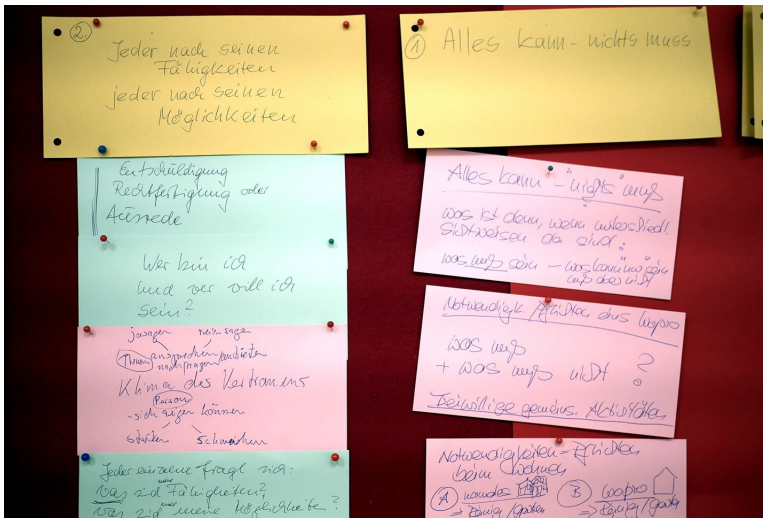 2.
Jeder nach seinen
Fähigkeiten
jeder nach seinen
Möglichkeiten
Entschuldigung
Rechtfertigung oder
Ausrede
Wer bin ich
und wer will ich
sein?
jasagen neinsagen
Thema ansprechen
nachfragen
Klima des Vertrauens
Person
- sich zeigen können
stärken schwächen
Jeder einzelne fragt sich:
was sind Fähigkeiten?
was sind meine Möglichkeiten?
1
Alles kann - nichts muss
Alles kann - "nichts" muß
was ist denn, wenn unterschiedl.
Sichtweisen da sind?
was muß sein - was kann
muß aber nicht
Notwendigk / Pflichten des Wopro
was muß
+ was muß nicht ?
Freiwillige gemeins. Aktivitäten
Notwendigkeiten - Pflichten
beim Wohnen
A B wopro